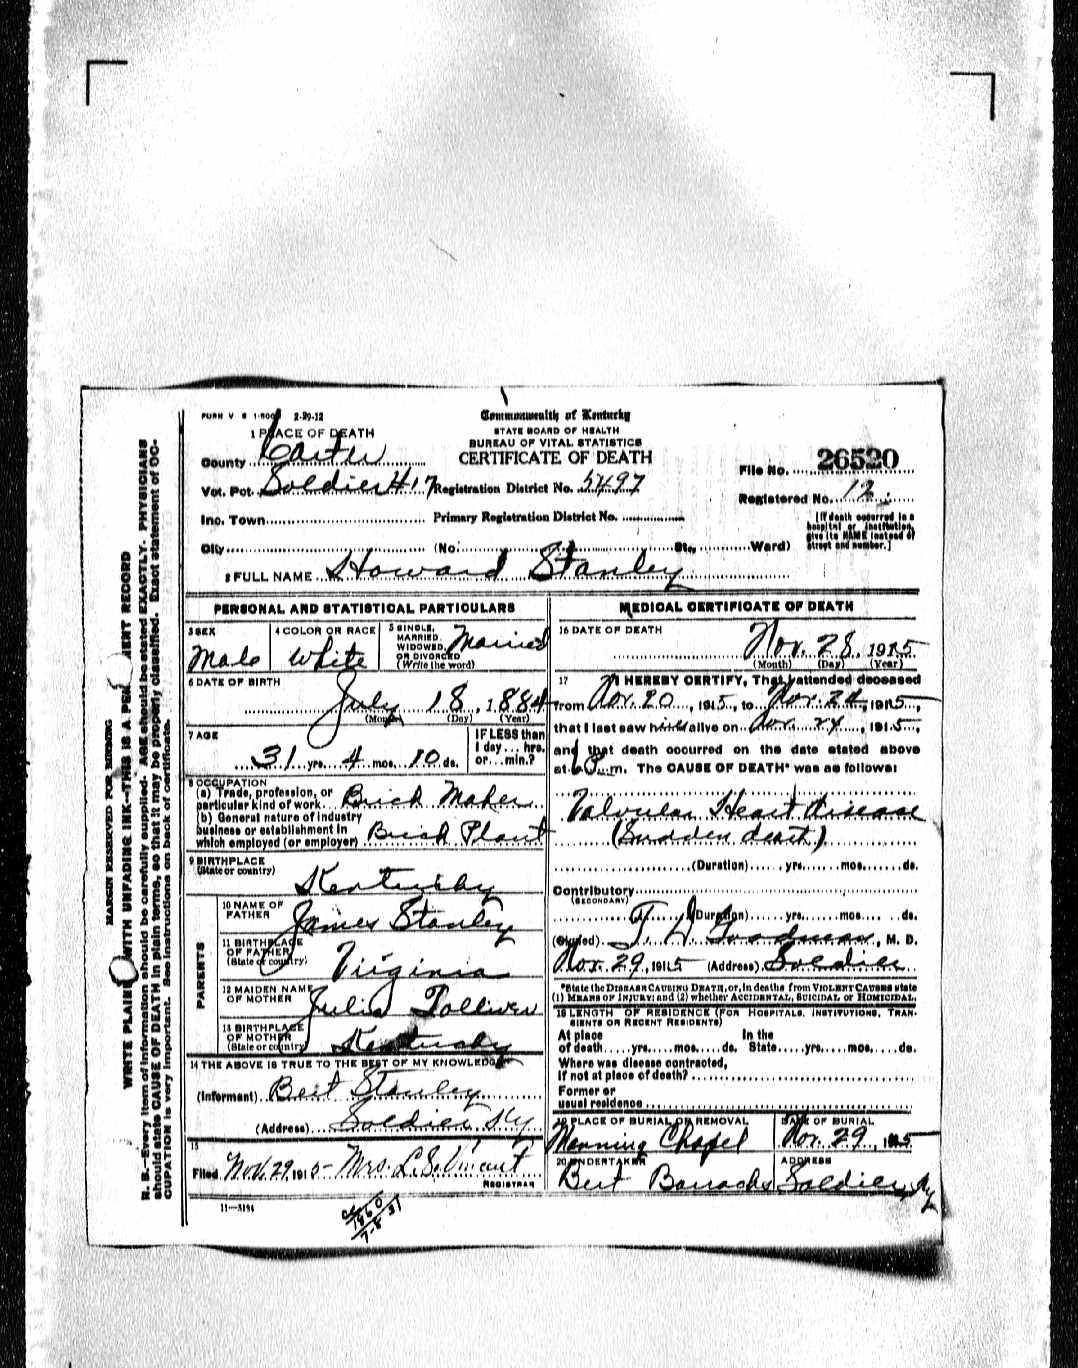 FORM V S 1-500 2-29-12
Commonwealth of Kentucky
STATE BOARD OF HEALTH
BUREAU OF VITAL STATISTICS
CERTIFICATE OF DEATH
1 PLACE OF DEATH
County Carter
Vot. Pct. Soldier #17 Registration District No. 5497
File No. 26520
Registered No. 12
Inc. Town Primary Registration District No.
[If death occurred in a
hospital or institution,
give its NAME instead of
street and number.]
City (No. St., Ward)
2 FULL NAME Howard Stanley
PERSONAL AND STATISTICAL PARTICULARS
3 SEX
Male
4 COLOR OR RACE
White
5 SINGLE,
MARRIED,
WIDOWED,
OR DIVORCED
(Write the word)
Married
6 DATE OF BIRTH
July 18, 1884
(Month) (Day) (Year)
7 AGE
31 yrs. 4 mos. 10 ds.
IF LESS than
1 day ... hrs.
or ... min.?
8 OCCUPATION
(a) Trade, profession, or
particular kind of work Brick Maker
(b) General nature of industry
business or establishment in
which employed (or employer) Brick Plant
9 BIRTHPLACE
(State or country)
Kentucky
PARENTS
10 NAME OF
FATHER
James Stanley
11 BIRTHPLACE
OF FATHER
(State or country)
Virginia
12 MAIDEN NAME
OF MOTHER
Julia Tolliver
13 BIRTHPLACE
OF MOTHER
(State or country)
Kentucky
14 THE ABOVE IS TRUE TO THE BEST OF MY KNOWLEDGE
(Informant) Bert Stanley
(Address) Soldier, Ky
15
Filed Nov. 29, 1915 Mrs. L. S. Vincent
REGISTRAR
11—3184
MEDICAL CERTIFICATE OF DEATH
16 DATE OF DEATH
Nov. 28, 1915
(Month) (Day) (Year)
17 I HEREBY CERTIFY, That I attended deceased
from Nov. 20, 1915, to Nov. 24, 1915,
that I last saw him alive on Nov. 24, 1915,
and that death occurred on the date stated above
at m. The CAUSE OF DEATH* was as follows:
Valvular Heart disease
(Sudden deart)
(Duration) yrs. mos. ds.
Contributory
(SECONDARY)
(Duration) yrs. mos. ds.
(Signed) Goodman, M. D.
Nov. 29, 1915 (Address) Soldier
*State the DISEASE CAUSING DEATH, or, in deaths from VIOLENT CAUSES state
(1) MEANS OF INJURY; and (2) whether ACCIDENTAL, SUICIDAL or HOMICIDAL.
18 LENGTH OF RESIDENCE (FOR HOSPITALS, INSTITUTIONS, TRAN-
SIENTS OR RECENT RESIDENTS)
At place In the
of death yrs. mos. ds. State yrs. mos. ds.
Where was disease contracted,
If not at place of death?
Former or
usual residence
19 PLACE OF BURIAL OR REMOVAL
Manning Chapel
DATE OF BURIAL
Nov. 29, 1915
20 UNDERTAKER
Bert
ADDRESS
Soldier, Ky
MARGIN RESERVED FOR BINDING
WRITE PLAINLY WITH UNFADING INK—THIS IS A PERMANENT RECORD
N. B.—Every item of information should be carefully supplied. AGE should be stated EXACTLY. PHYSICIANS
should state CAUSE OF DEATH in plain terms, so that it may be properly classified. Exact statement of OC-
CUPATION is very important. See instructions on back of certificate.